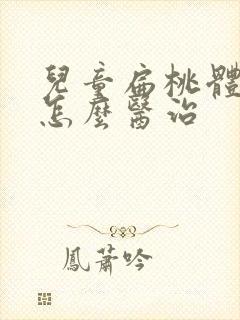 兒童扁桃體
怎麼醫治
鳳蕭吟